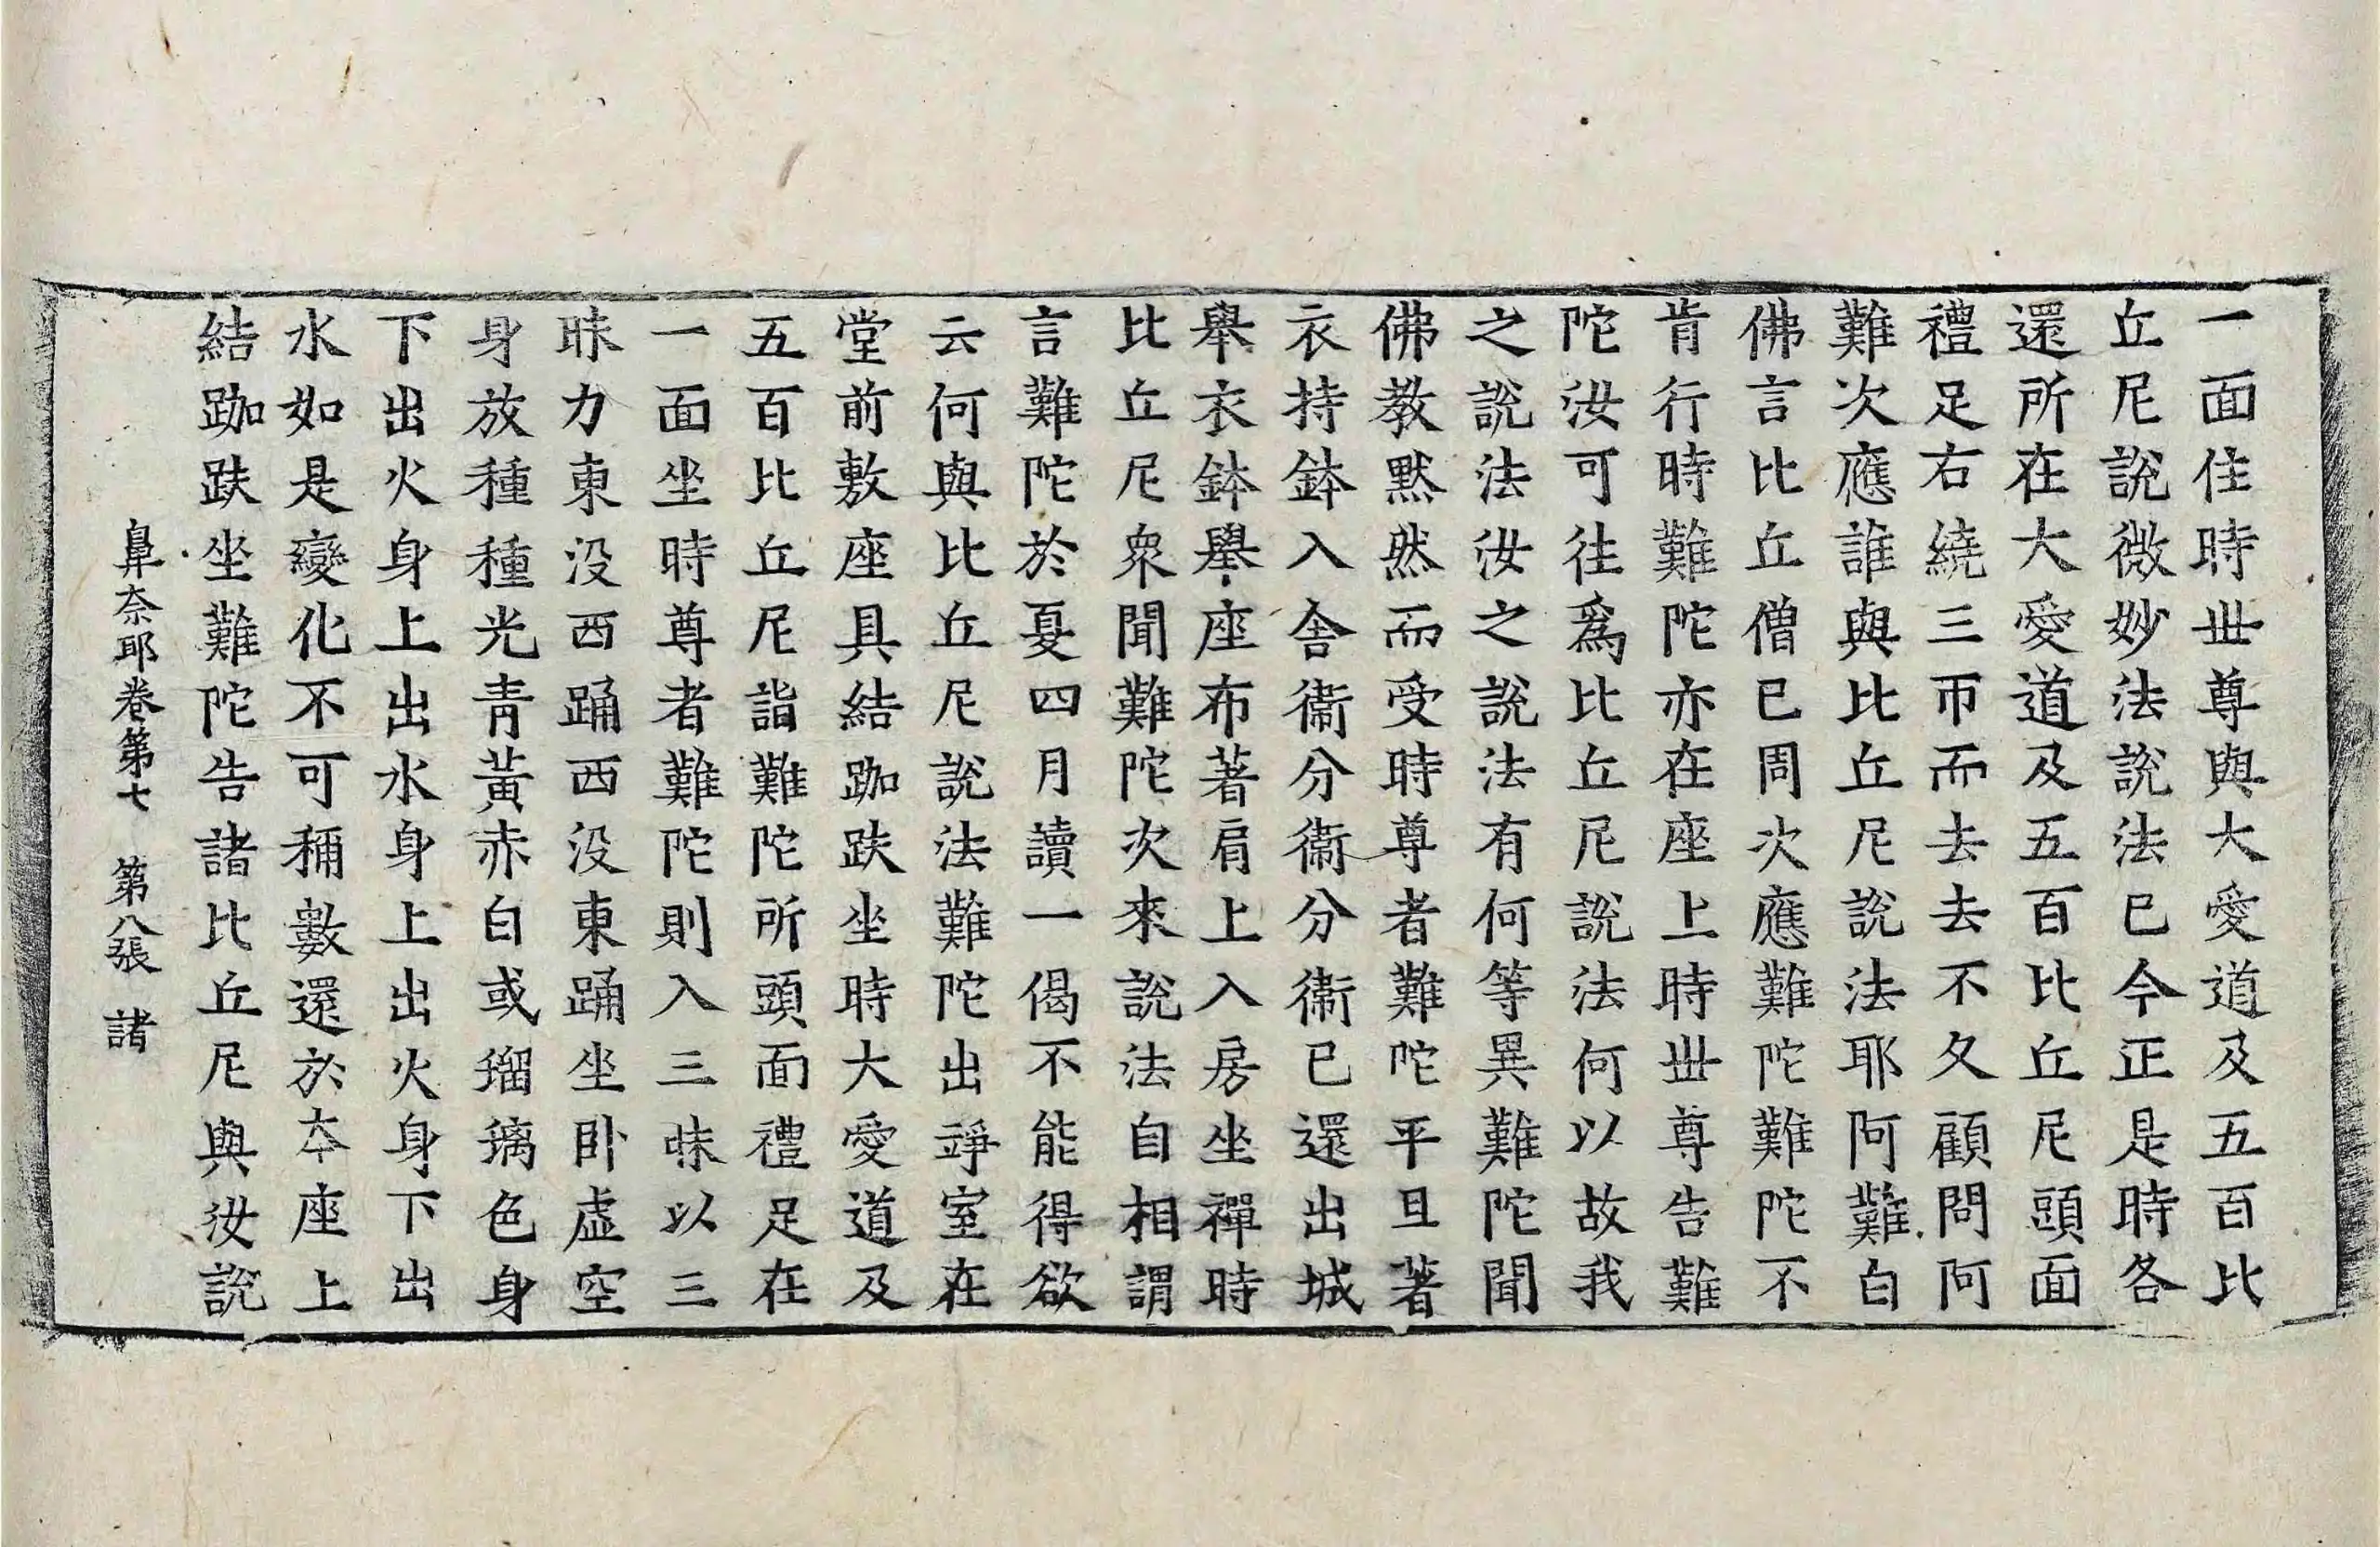 一面住時世尊與大愛道及五百比
丘尼說微妙法說法已今正是時各
還所在大愛道及五百比丘尼頭面
禮足右繞三帀而去去不久顧問阿
難次應誰與比丘尼說法耶阿難白
佛言比丘僧已周次應難陀難陀不
肯行時難陀亦在座上時世尊告難
陀汝可往爲比丘尼說法何以故我
之說法汝之說法有何等異難陀聞
佛教默然而受時尊者難陀平旦著
衣持鉢入舍衞分衞分衞已還出城
舉衣鉢舉座布著肩上入房坐禪時
比丘尼衆聞難陀次來說法自相謂
言難陀於夏四月讀一偈不能得欲
云何與比丘尼說法難陀出竫室在
堂前敷座具結跏趺坐時大愛道及
五百比丘尼詣難陀所頭面禮足在
一面坐時尊者難陀則入三昧以三
昧力東没西踊西没東踊坐卧虛空
身放種種光青黃赤白或瑠璃色身
下出火身上出水身上出火身下出
水如是變化不可稱數還於本座上
結跏趺坐難陀告諸比丘尼與汝說
鼻奈耶卷第七 第八張 諸